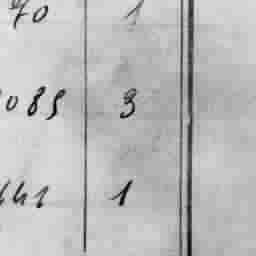 70 1
085 3
441 1